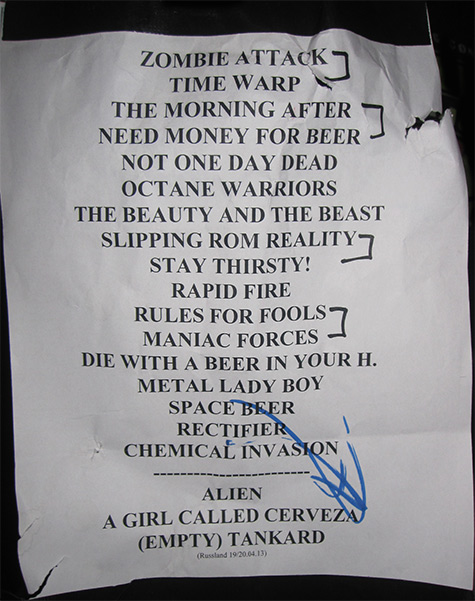 ZOMBIE ATTACK
TIME WARP
THE MORNING AFTER
NEED MONEY FOR BEER
NOT ONE DAY DEAD
OCTANE WARRIORS
THE BEAUTY AND THE BEAST
SLIPPING ROM REALITY
STAY THIRSTY!
RAPID FIRE
RULES FOR FOOLS
MANIAC FORCES
DIE WITH A BEER IN YOUR H.
METAL LADY BOY
SPACE BEER
RECTIFIER
CHEMICAL INVASION
-----------------------
ALIEN
A GIRL CALLED CERVEZA
(EMPTY) TANKARD
(Russland 19/20.04.13)